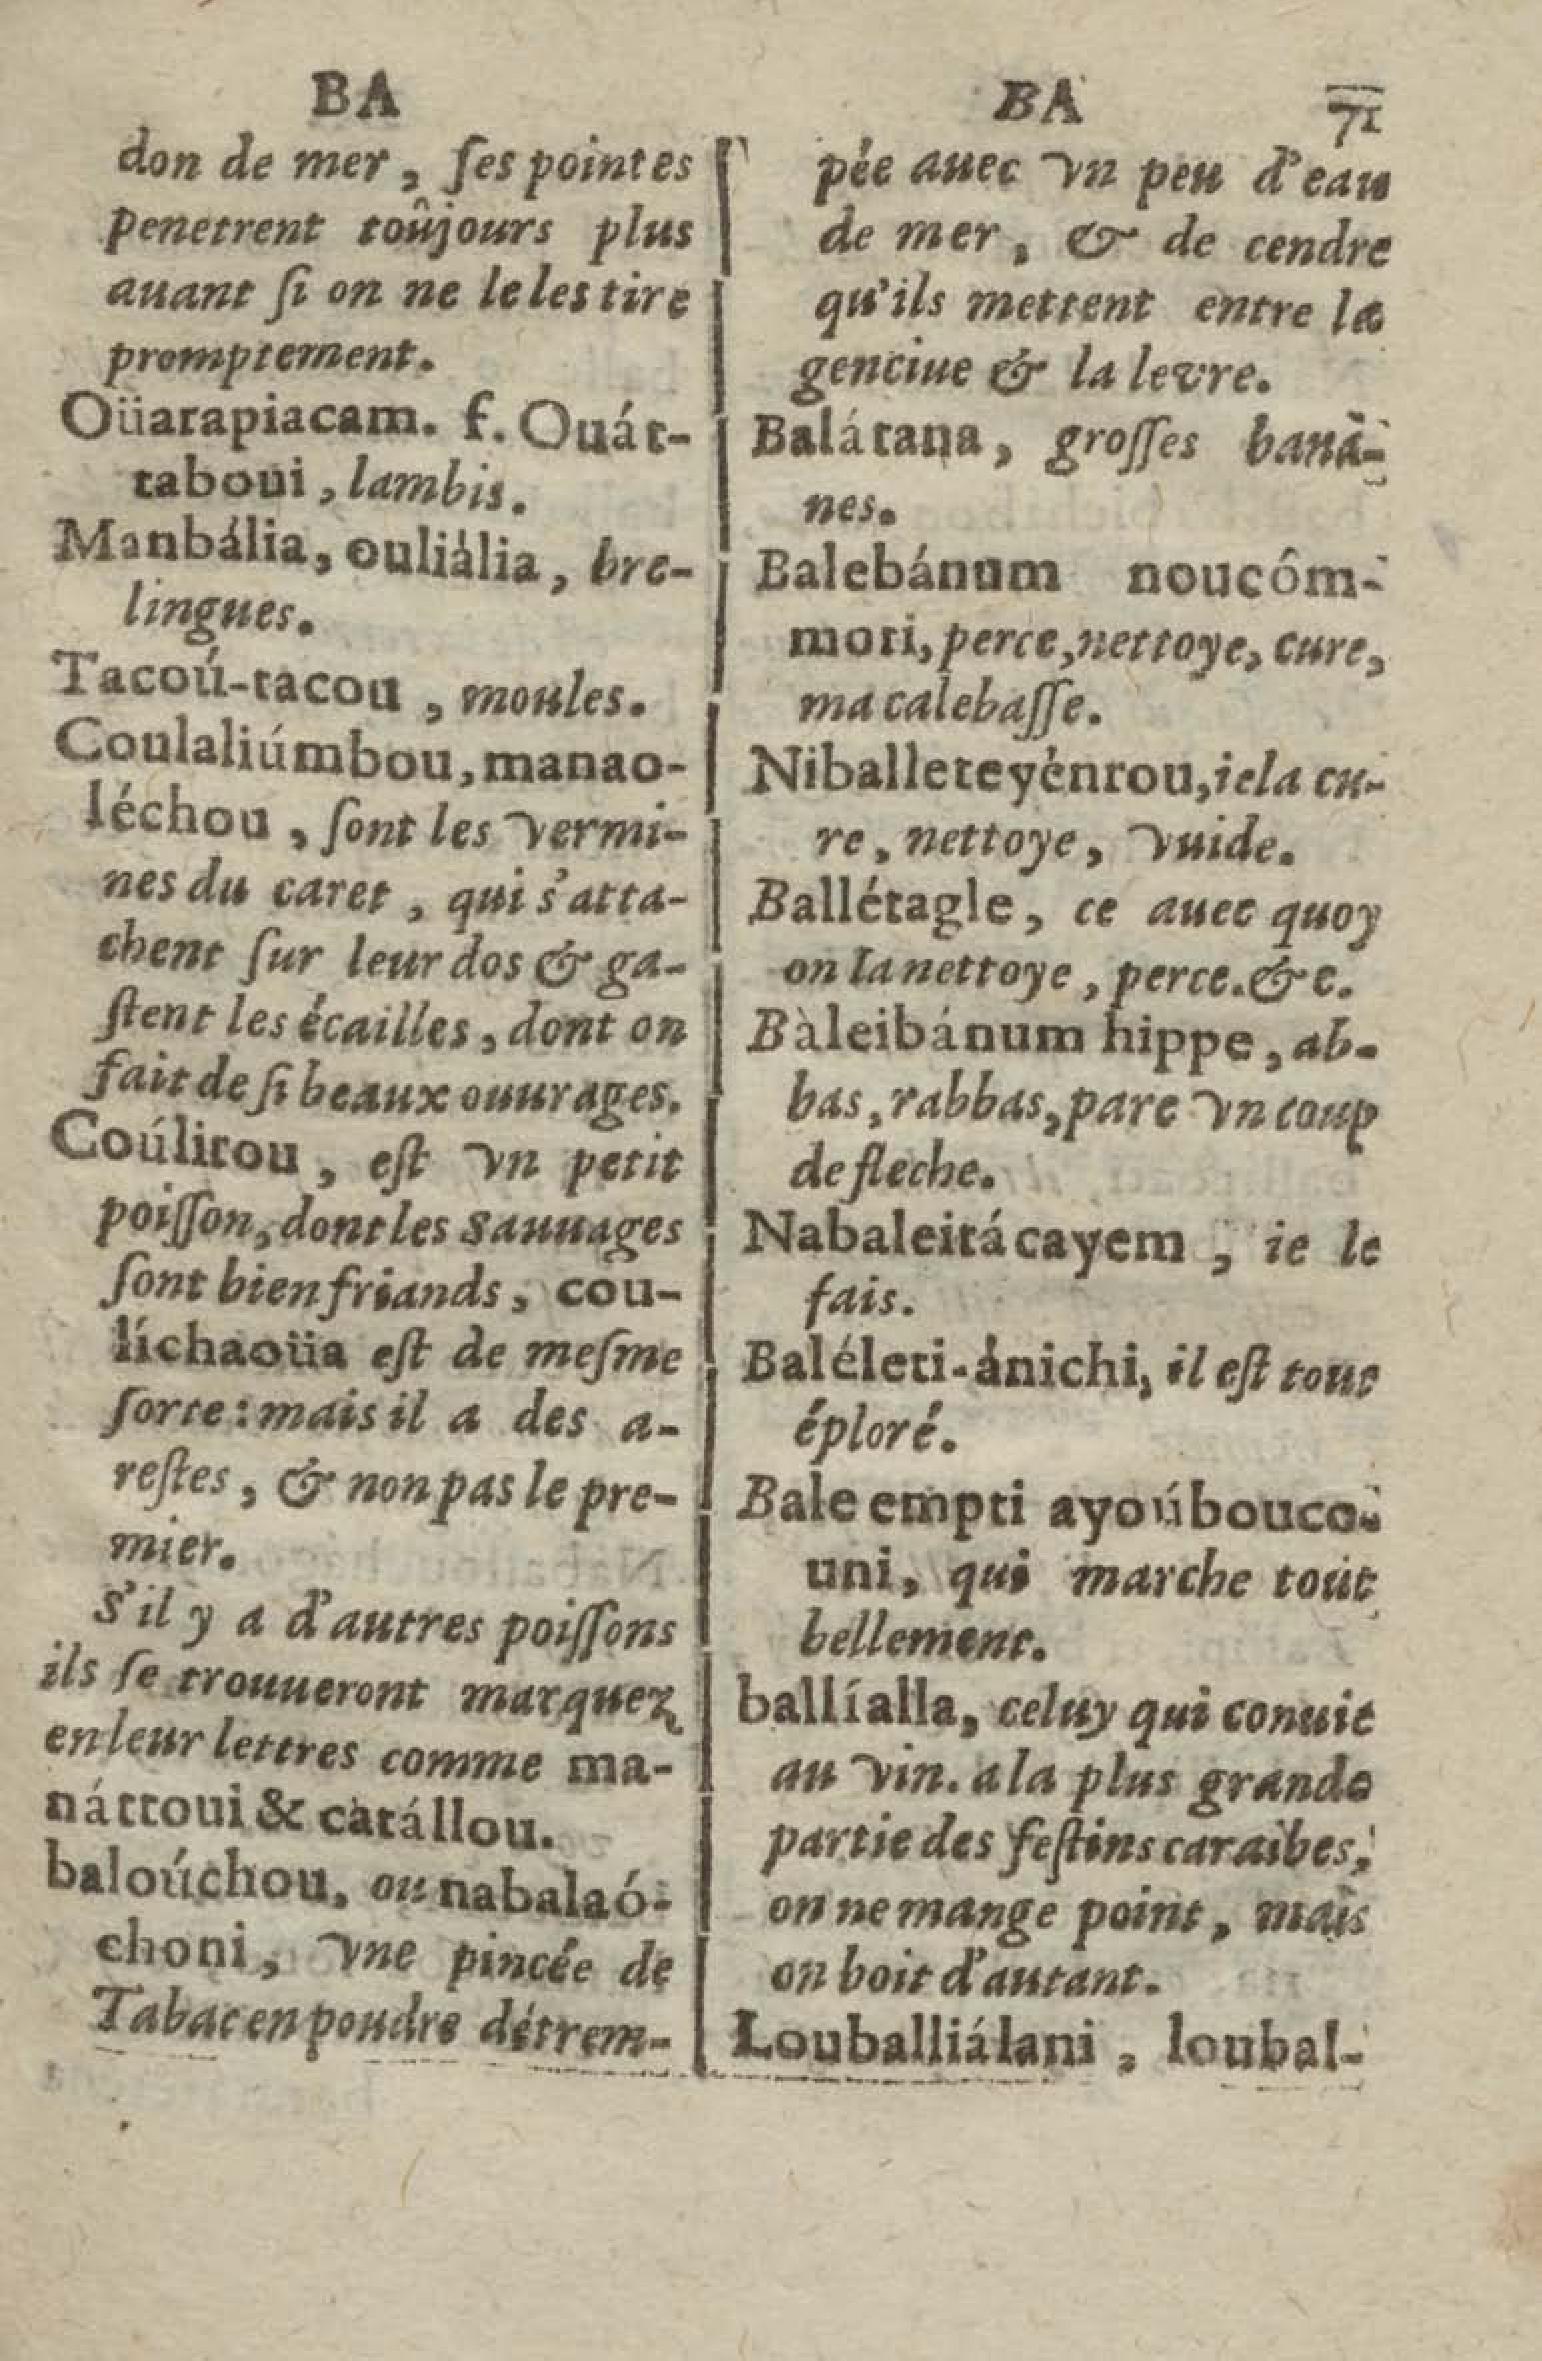 BA
don de mer, ſes pointes
penetrent toûjours plus
auant ſi on ne le les tire
promptement.
Oüatapiacam. f. Ouát-
taboui, lambis.
Manbália, ouliália, bre-
lingues.
Tacoú-tacou, moules.
Coulaliúmbou, manao-
léchou, ſont les vermi-
nes du caret, qui s'atta-
chent ſur leur dos & ga-
ſtent les écailles, dont on
fait de ſi beaux ouurages.
Coúlirou, eſt vn petit
poiſſon, dont les Sauuages
ſont bien friands, cou-
líchaoüa eſt de meſme
ſorte: mais il a des a-
reſtes, & non pas le pre-
mier.
S'il y a d'autres poiſſons
ils ſe trouueront marquez
en leur lettres comme ma-
náttoui & catállou.
baloúchou, ou nabalaó-
choni, vne pincée de
Tabac en poudre détrem-
BA 71
pée auec vn peu d'eau
de mer, & de cendre
qu'ils mettent entre la
genciue & la levre.
Balátana, groſſes bana-
nes.
Balebánum noucóm-
mori, perce, nettoye, cure,
ma calebaſſe.
Niballeteyénrou, ie la cu-
re, nettoye, vuide.
Ballétagle, ce auec quoy
on la nettoye, perce. &c.
Bàleibánum hippe, ab-
bas, rabbas, pare vn coup
de fleche.
Nabaleitácayem, ie le
fais.
Baléleti-ánichi, il eſt tout
éploré.
Bale empti ayoúbouco-
uni, qui marche tout
bellement.
ballíalla, celuy qui conuie
au vin. a la plus grande
partie des feſtins caraibes,
on ne mange point, mais
on boit d'autant.
Louballiálani, loubal-